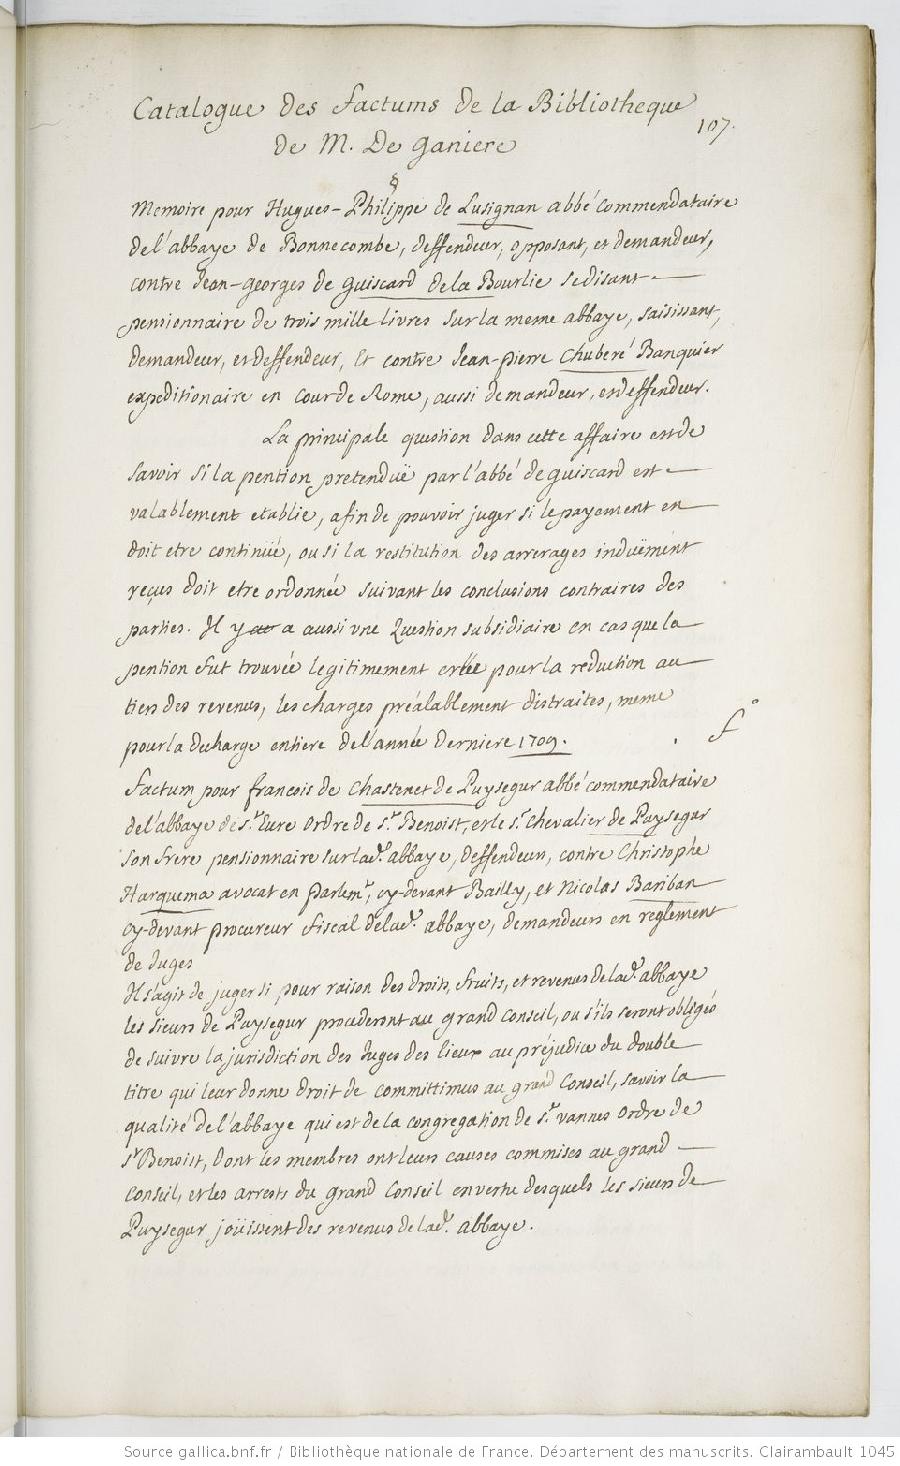 Catalogue des factums de la Bibliotheque
107.
de M. De Ganiere
§
Memoire pour Hugues-Philippe de Lusignan abbé commendataire
de l'abbaye de Bonnecombe, deffendeur, opposant, et demandeur,
contre Jean-Georges de Guiscard de la Bourlie se disant
pensionnaire de trois mille livres sur la meme abbaye, saisissant,
demandeur, et deffendeur, Et contre Jean-pierre Chuberé Banquier
expeditionaire en Cour de Rome, aussi demandeur, et deffendeur.
La principale question dans cette affaire est de
savoir si la pention pretenduë par l'abbé de Guiscard est
valablement etablie, afin de pouvoir juger si le payement en
doit etre continüé, ou si la restitution des arrerages induëment
reçus doit etre ordonnée suivant les conclusions contraires des
parties. Il y a aussi vne Question subsidiaire en cas que la
pention fut trouvée legitimement créée pour la reduction au
tiers des revenus, les charges préalablement distraites, meme
pour la decharge entiere de l'année derniere 1709.
f°
Factum pour francois de Chastenet de Puysegur abbé commendataire
de l'abbaye de St. Eure ordre de St. Benoist, et le Sr. Chevalier de Puysegur
son frere pensionnaire sur lade. abbaye, deffendeurs, contre Christophe
Harquema avocat en parlemt., cy-devant Bailly, et Nicolas Bariban
cy-devant procureur fiscal de lade. abbaye, demandeurs en reglement
de Juges
Il s'agit de juger si pour raison des droits, fruits, et revenus de lade. abbaye
les sieurs de Puysegur procederont au grand Conseil, ou s'ils seront obligés
de suivre la jurisdiction des Juges des lieux au préjudice du double
titre qui leur donne droit de committimus au grand Conseil, savoir la
qualité de l'abbaye qui est de la congregation de St. vannes ordre de
St. Benoist, dont les membres ont leurs causes commises au grand
Conseil, et les arrests du grand Conseil en vertu desquels les sieurs de
Puysegur joüissent des revenus de lade. abbaye.
Source gallica.bnf.fr / Bibliothèque nationale de France. Département des manuscrits. Clairambault 1045